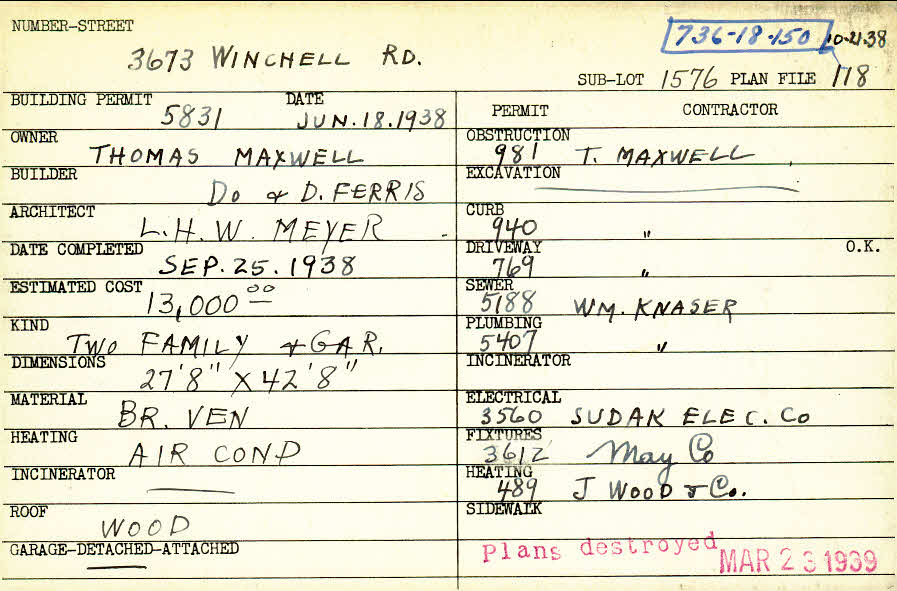 NUMBER-STREET
3673 WINCHELL RD.
736-18-150 10-21-38
SUB-LOT 1576 PLAN FILE 118
BUILDING PERMIT 5831 DATE JUN.18.1938
OWNER
THOMAS MAXWELL
BUILDER
DO & D. FERRIS
ARCHITECT
L.H.W. MEYER
DATE COMPLETED
SEP.25.1938
ESTIMATED COST
13,000 00
KIND
TWO FAMILY & GAR.
DIMENSIONS
27'8" X 42'8"
MATERIAL
BR. VEN
HEATING
AIR COND
INCINERATOR
ROOF
WOOD
GARAGE-DETACHED-ATTACHED
PERMIT CONTRACTOR
OBSTRUCTION
981 T. MAXWELL
EXCAVATION
CURB
940 "
DRIVEWAY O.K.
769 "
SEWER
5188 WM. KNASER
PLUMBING
5407 "
INCINERATOR
ELECTRICAL
3560 SUDAK ELEC. CO
FIXTURES
3612 May Co
HEATING
489 J WOOD & Co.
SIDEWALK
Plans destroyed MAR 23 1939